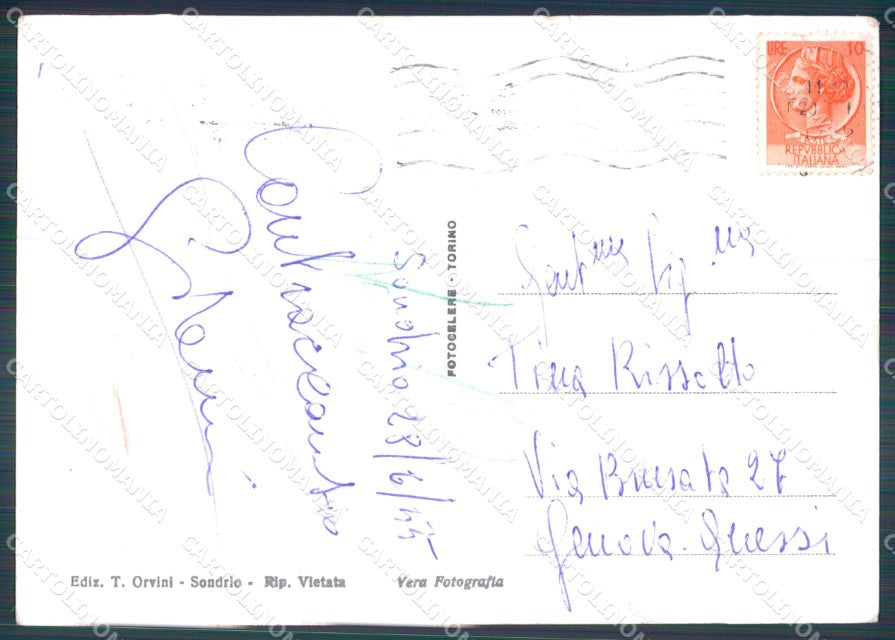 LIRE 10
REPVBBLICA
ITALIANA
Sondrio 28/6/55
Gent.ma Sig.na
Tina Rissotto
Via Brusata 27
Genova-Quessi
FOTOCELERE - TORINO
Ediz. T. Orvini - Sondrio - Rip. Vietata
Vera Fotografia
CARTOLINOMANIA